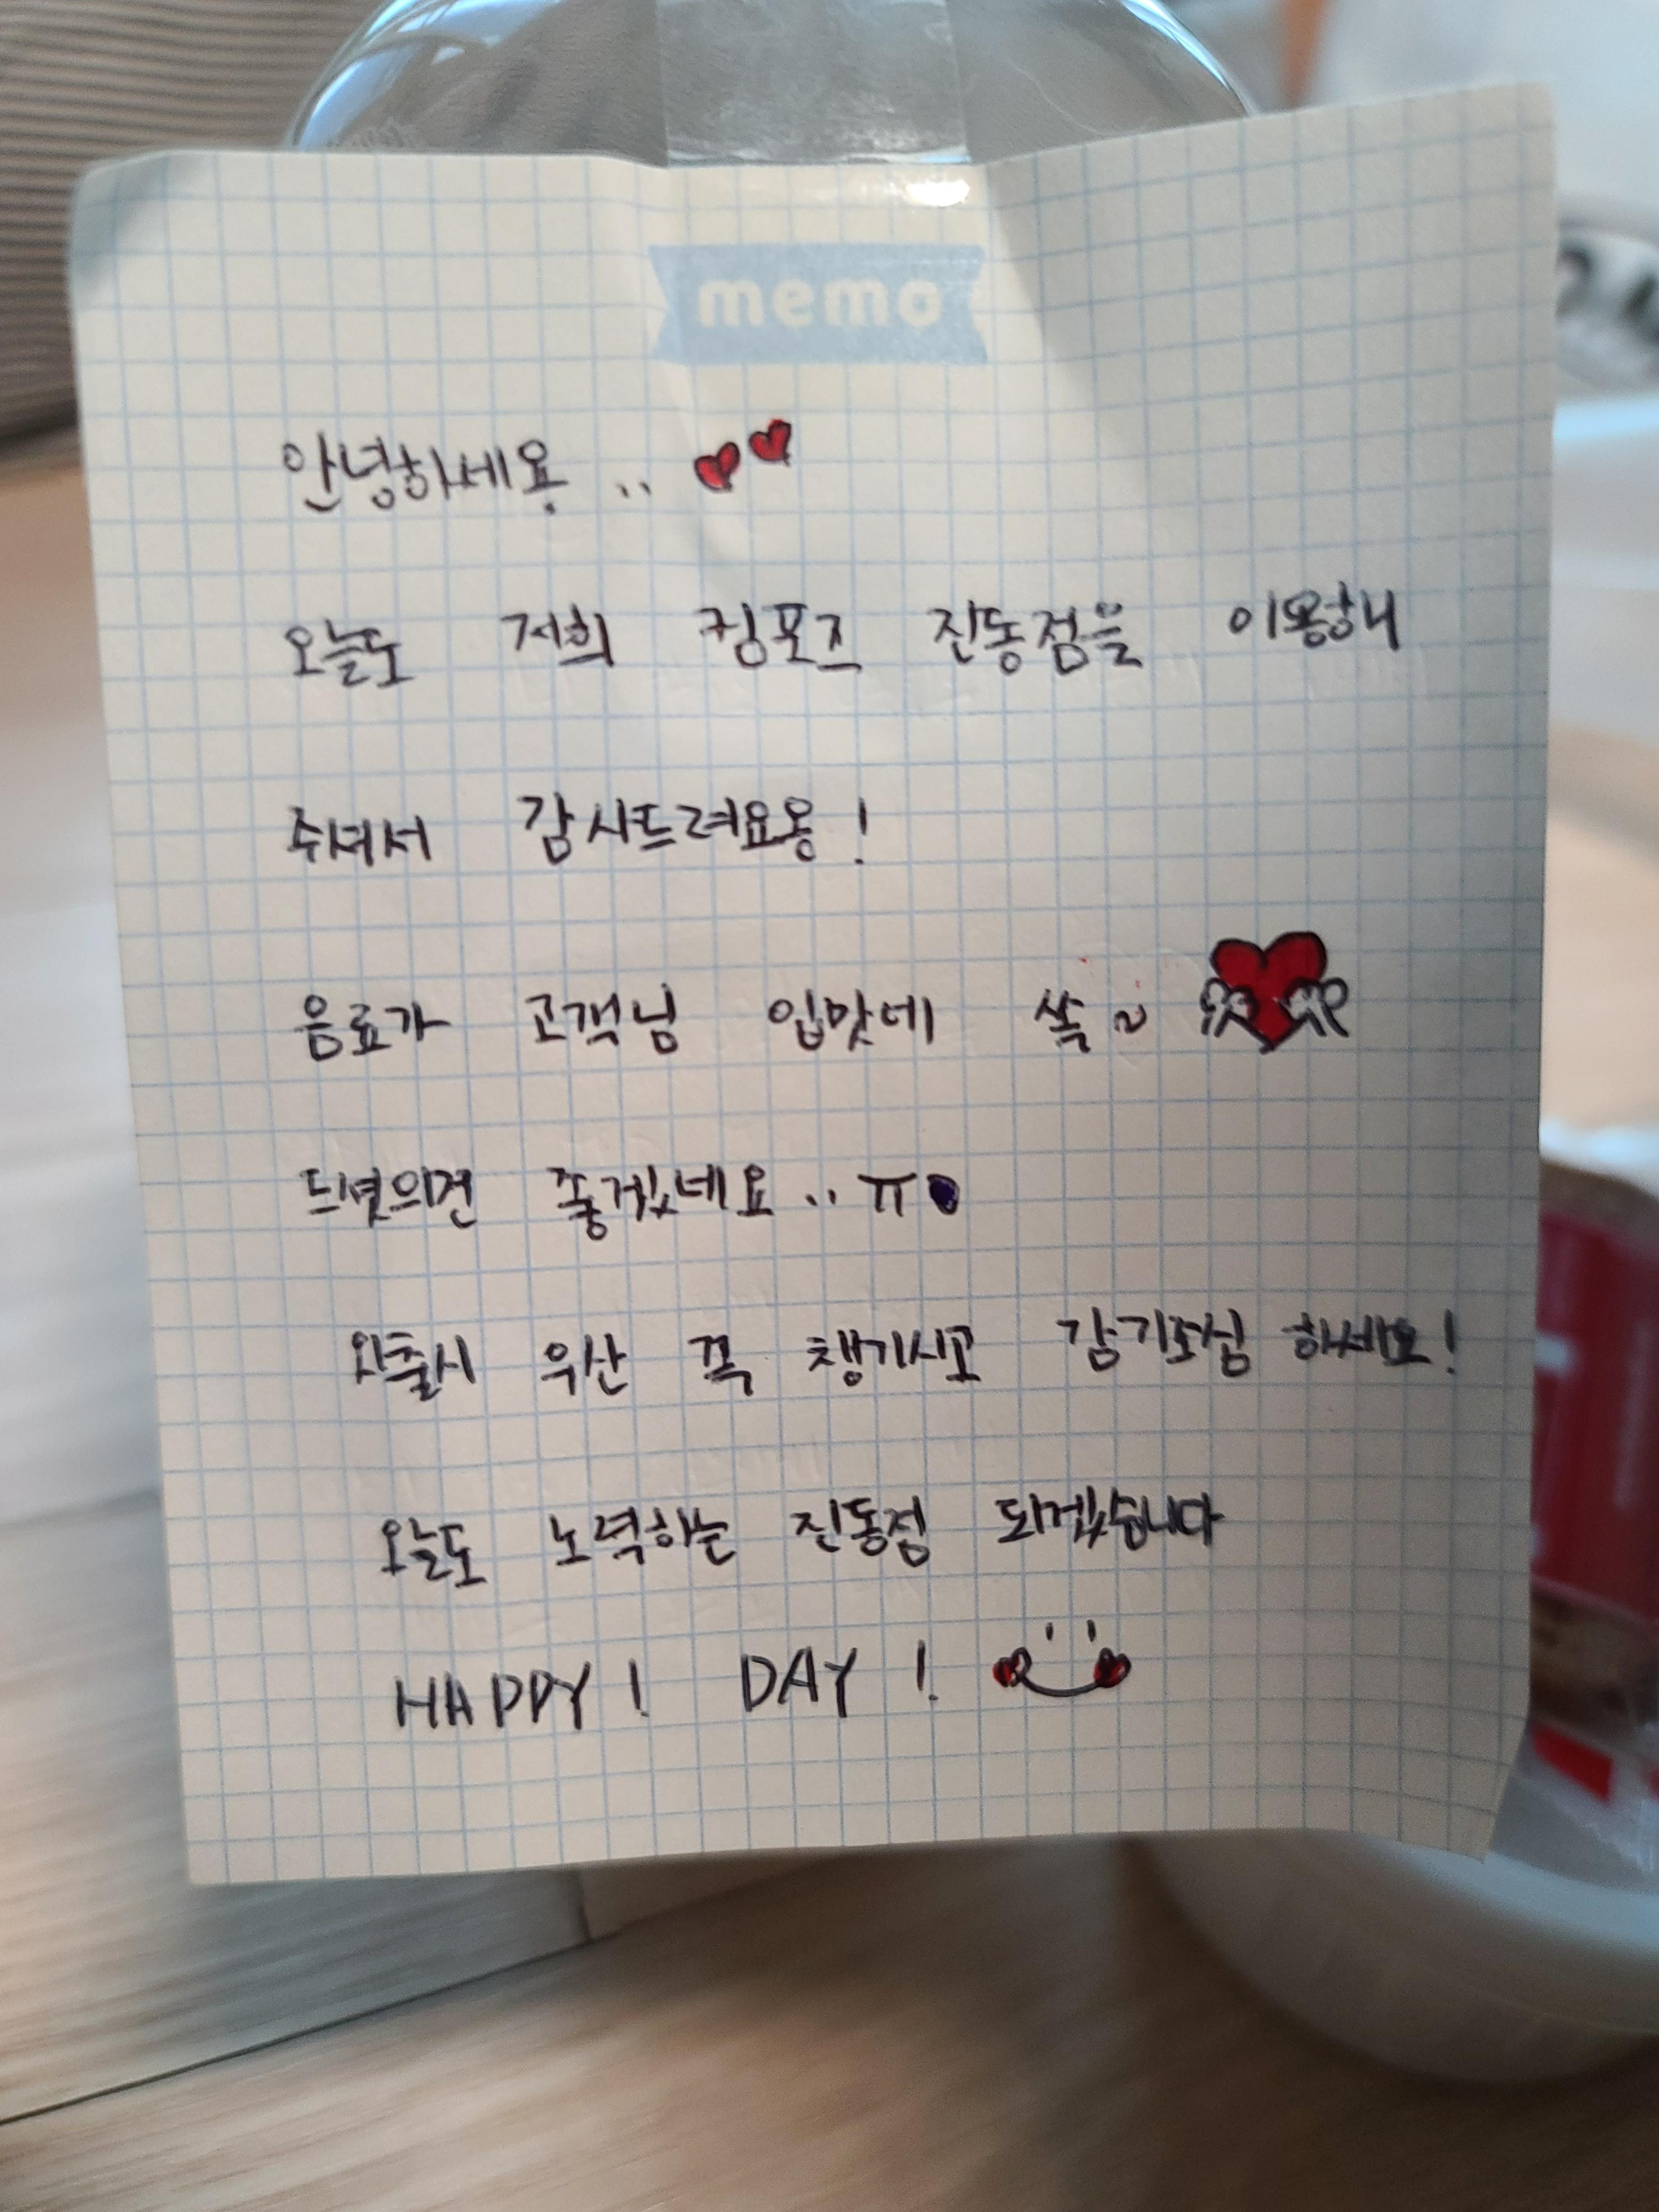 memo
안녕하세용 .. 
오늘도 저희 킹포즈 진동점을 이용해
주셔서 감사드려요옹!
음료가 고객님 입맛에 쏙~
드셨의면 좋겠네요..ㅠ
외출시 우산 꼭 챙기시고 감기조심 하세요!
오늘도 노력하는 진동점 되겠습니다
HAPPY! DAY!